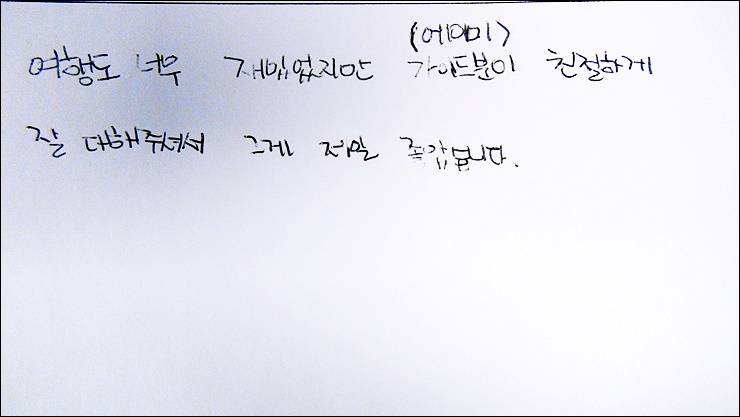 (에이미)
여행도 너무 재밌었지만 가이드분이 친절하게
잘 대해주셔서 그게 정말 좋았습니다.